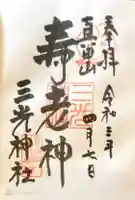 奉拝
真田山
令和三年
四月七日
寿老神
三光神社